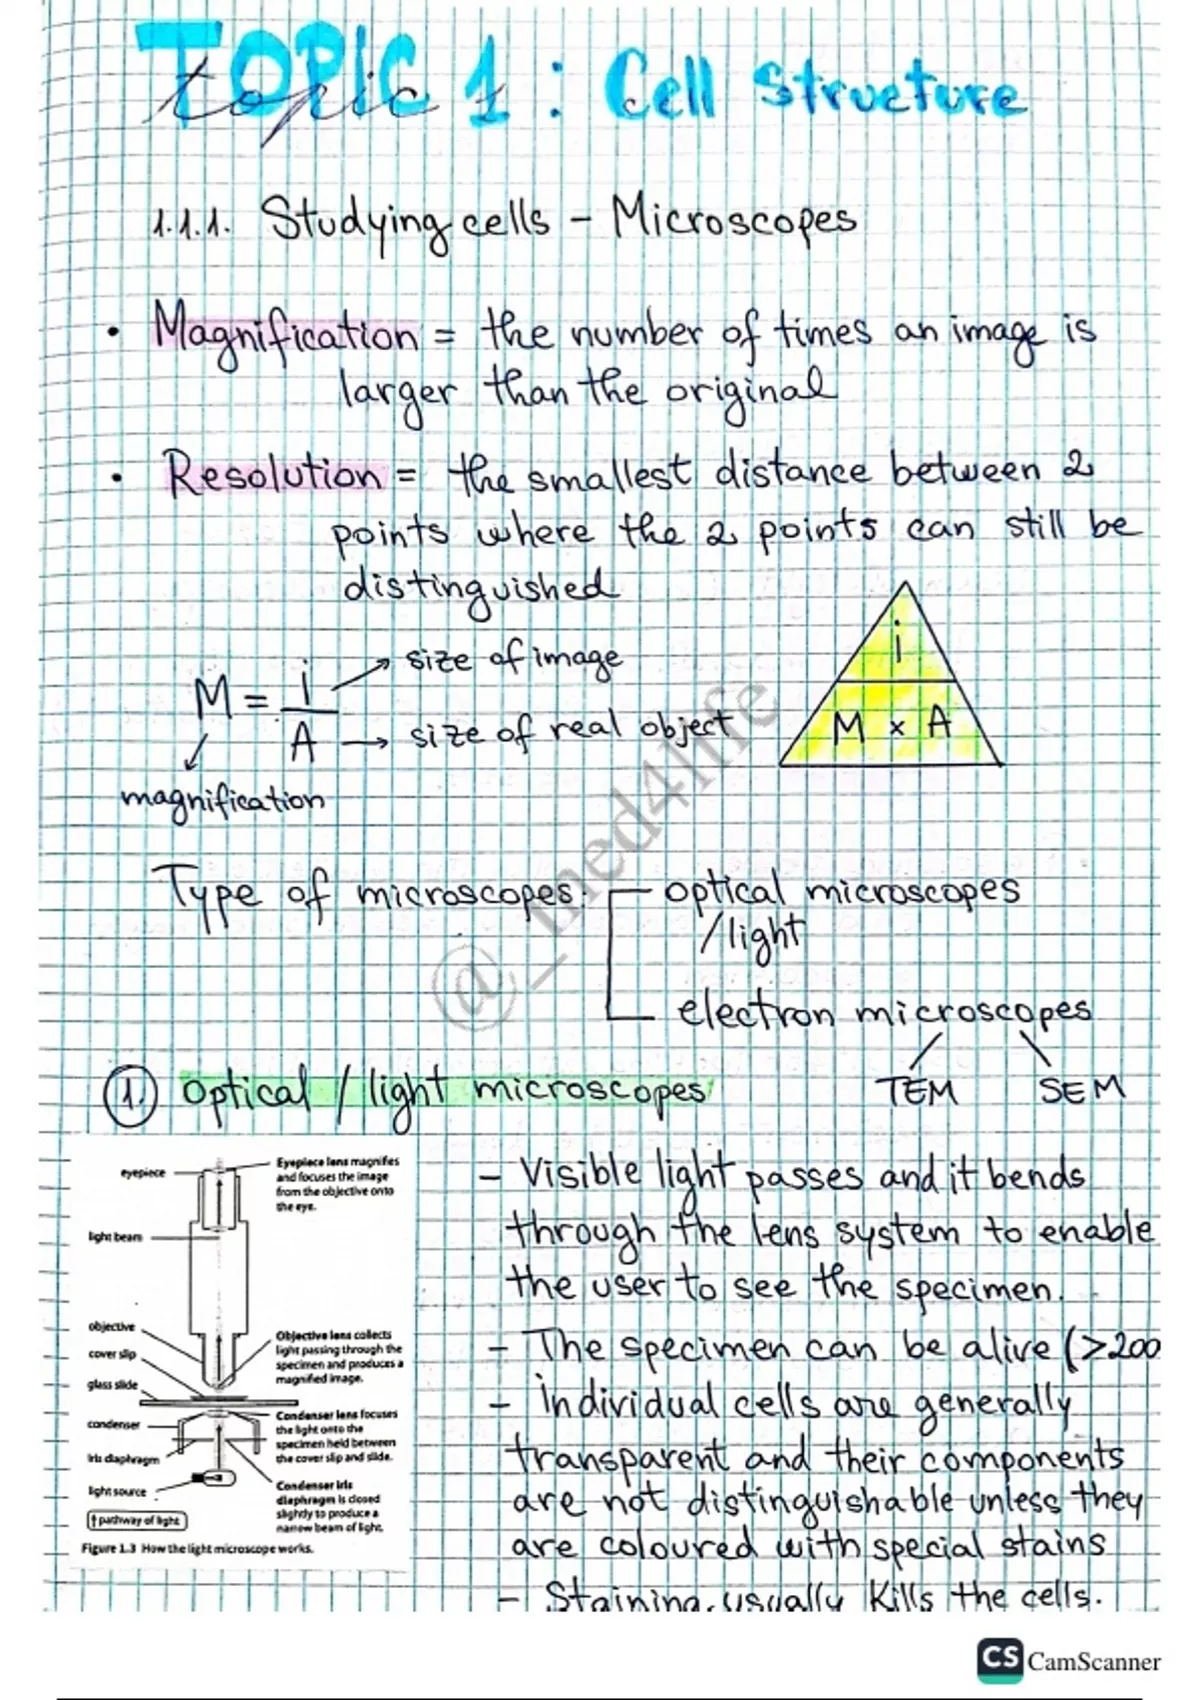 TOPIC 1 : Cell Structure
topic
1.1.1. Studying cells - Microscopes
• Magnification = the number of times an image is
larger than the original
• Resolution = the smallest distance between 2
points where the 2 points can still be
distinguished
M = i / A
→ size of image
→ size of real object
magnification
i
M × A
Type of microscopes:
optical microscopes
/light
electron microscopes
TEM SEM
1. Optical / light microscopes
eyepiece
light beam
objective
cover slip
glass slide
condenser
iris diaphragm
light source
↑ pathway of light
Eyepiece lens magnifies
and focuses the image
from the objective onto
the eye.
Objective lens collects
light passing through the
specimen and produces a
magnified image.
Condenser lens focuses
the light onto the
specimen held between
the cover slip and slide.
Condenser iris
diaphragm is closed
slightly to produce a
narrow beam of light.
Figure 1.3 How the light microscope works.
- Visible light passes and it bends
through the lens system to enable
the user to see the specimen.
- The specimen can be alive (>200
- individual cells are generally
transparent and their components
are not distinguishable unless they
are coloured with special stains
- Staining usually kills the cells.
@_med4life
CS CamScanner